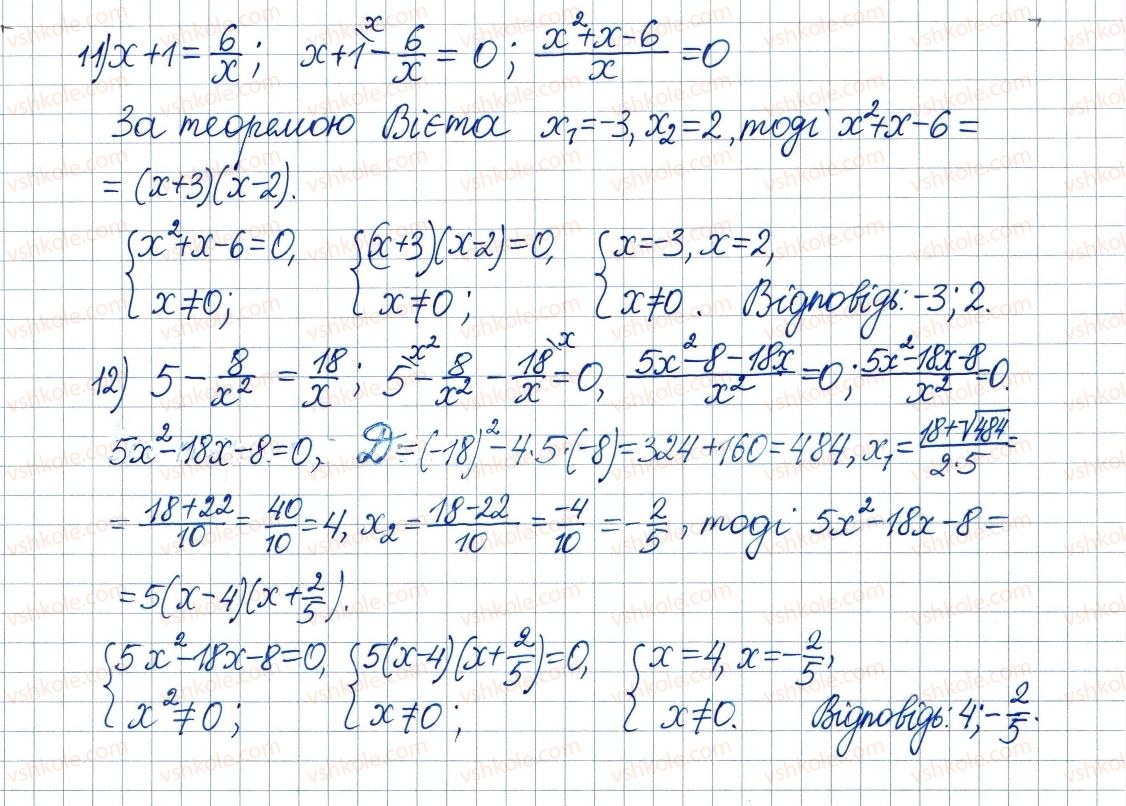 11) x+1 = 6/x; x+1\x − 6/x = 0; (x²+x−6)/x = 0
За теоремою Вієта x₁=−3, x₂=2, тоді x²+x−6 =
= (x+3)(x−2).
{x²+x−6=0, {(x+3)(x−2)=0, {x=−3, x=2,
x≠0; x≠0; x≠0. Відповідь: −3; 2.
12) 5 − 8/x² = 18/x; 5\x² − 8/x² − 18/x\x = 0, (5x²−8−18x)/x² = 0; (5x²−18x−8)/x² = 0.
5x²−18x−8=0, D = (−18)²−4·5·(−8)=324+160=484, x₁ = (18+√484)/(2·5) =
= (18+22)/10 = 40/10 = 4, x₂ = (18−22)/10 = −4/10 = −2/5, тоді 5x²−18x−8 =
= 5(x−4)(x+2/5).
{5x²−18x−8=0, {5(x−4)(x+2/5)=0, {x=4, x=−2/5,
x²≠0; x≠0; x≠0. Відповідь: 4; −2/5.
vshkole.com